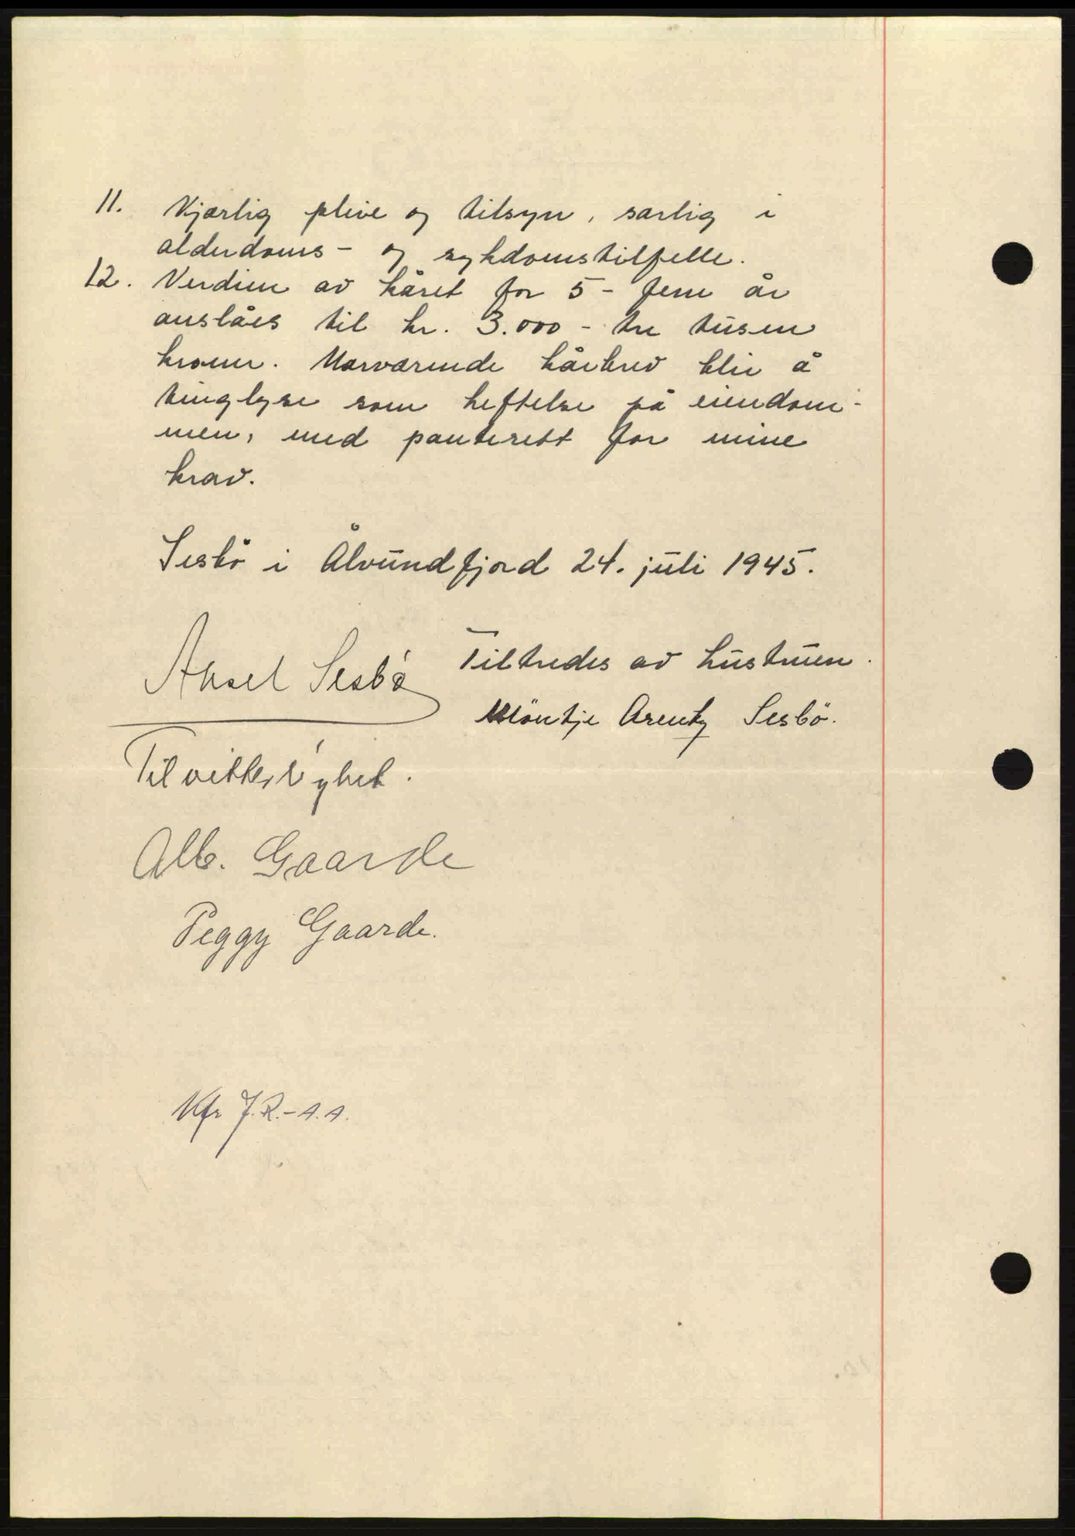 11. Kjærlig pleie og tilsyn, særlig i
alderdoms- og sykdomstilfelle.
12. Verdien av kåret for 5 - fem år
anslåes til kr. 3.000 - tre tusen
kroner. Nærværende kårbrev blir å
tinglyse som heftelse på eiendom-
men, med panterett for mine
krav.
Sesbö i Ålvundfjord 24. juli 1945.
Aksel Sesbö
Tiltredes av hustruen.
Möntje Arentz Sesbö.
Til vitterlighet.
Alb. Gaarde
Peggy Gaarde.
Kfr J.R. - A.A.